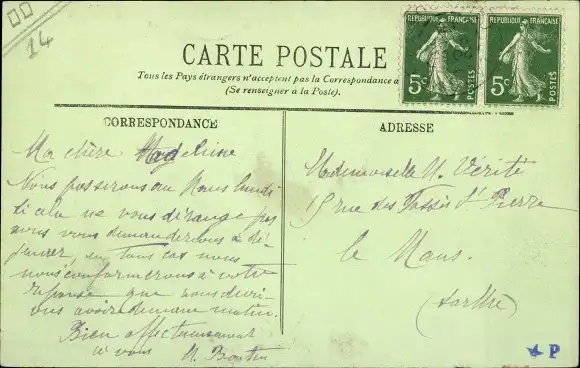 14
REPUBLIQUE FRANÇAISE
5c POSTES
REPUBLIQUE FRANÇAISE
5c POSTES
CARTE POSTALE
Tous les Pays étrangers n'acceptent pas la Correspondance a
(Se renseigner à la Poste).
CORRESPONDANCE
Ma chère Madeleine
Nous passerons au Mans lundi
si cela ne vous dérange pas
nous vous demanderons à dé-
jeuner, en tous cas nous
nous conformerons à votre
réponse que nous devri-
ons avoir demain matin.
Bien affectueusement
à vous
ADRESSE
Mademoiselle M. Vérité
15 rue des Fossés St Pierre
le Mans.
(Sarthe)
P